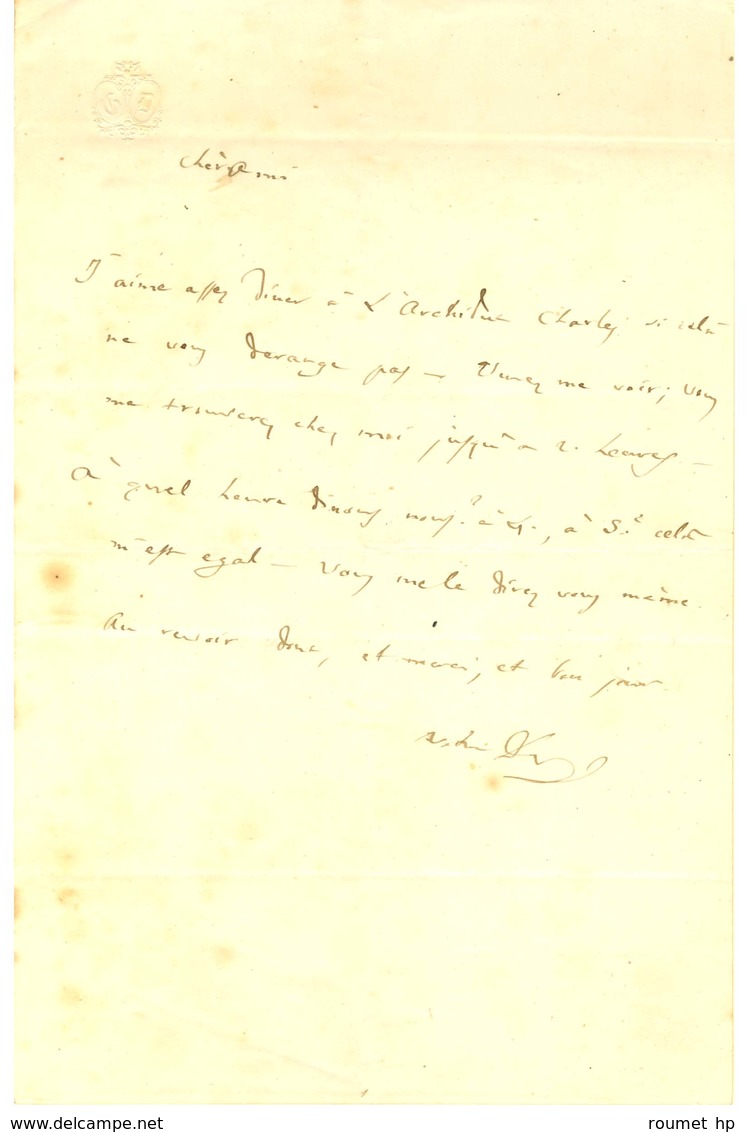 G D
Cher ami
J'aime assez diner à L'Architect Charles si celà
ne vous derange pas — Venez me voir; vous
me trouverez chez moi jusqu'a 2. heures —
à quel heure dinons nous? à 4., à 5.? celà
m'est egal — Vous me le direz vous même.
Au revoir donc, et merci, et bon jour
www.delcampe.net
roumet hp